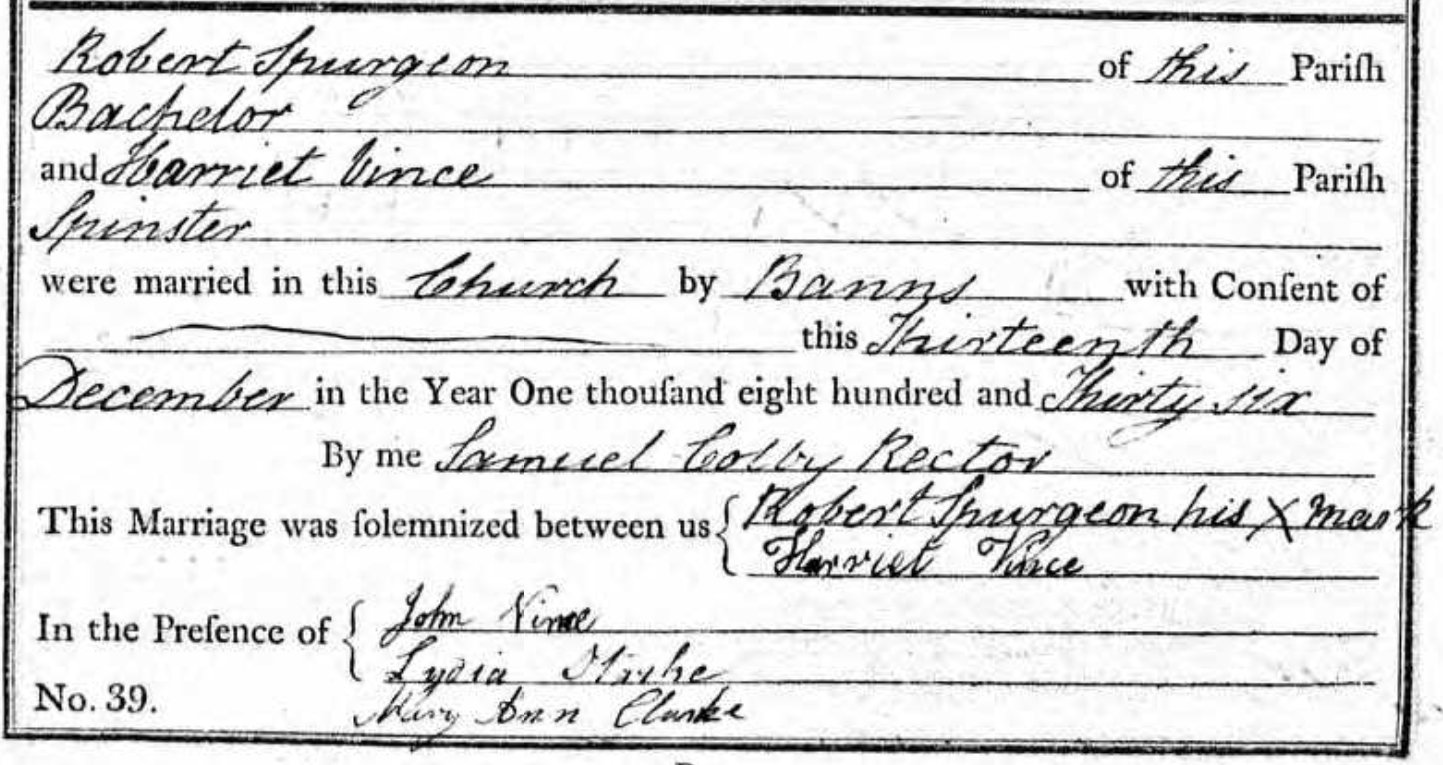 Robert Spurgeon of this Pariſh
Bachelor
and Harriet Vince of this Pariſh
Spinster
were married in this Church by Banns with Conſent of
this Thirteenth Day of
December in the Year One thouſand eight hundred and Thirty six
By me Samuel Colby Rector
This Marriage was ſolemnized between us { Robert Spurgeon his X mark
Harriet Vince
In the Preſence of { John Vince
Lydia
Mary Ann Clarke
No. 39.